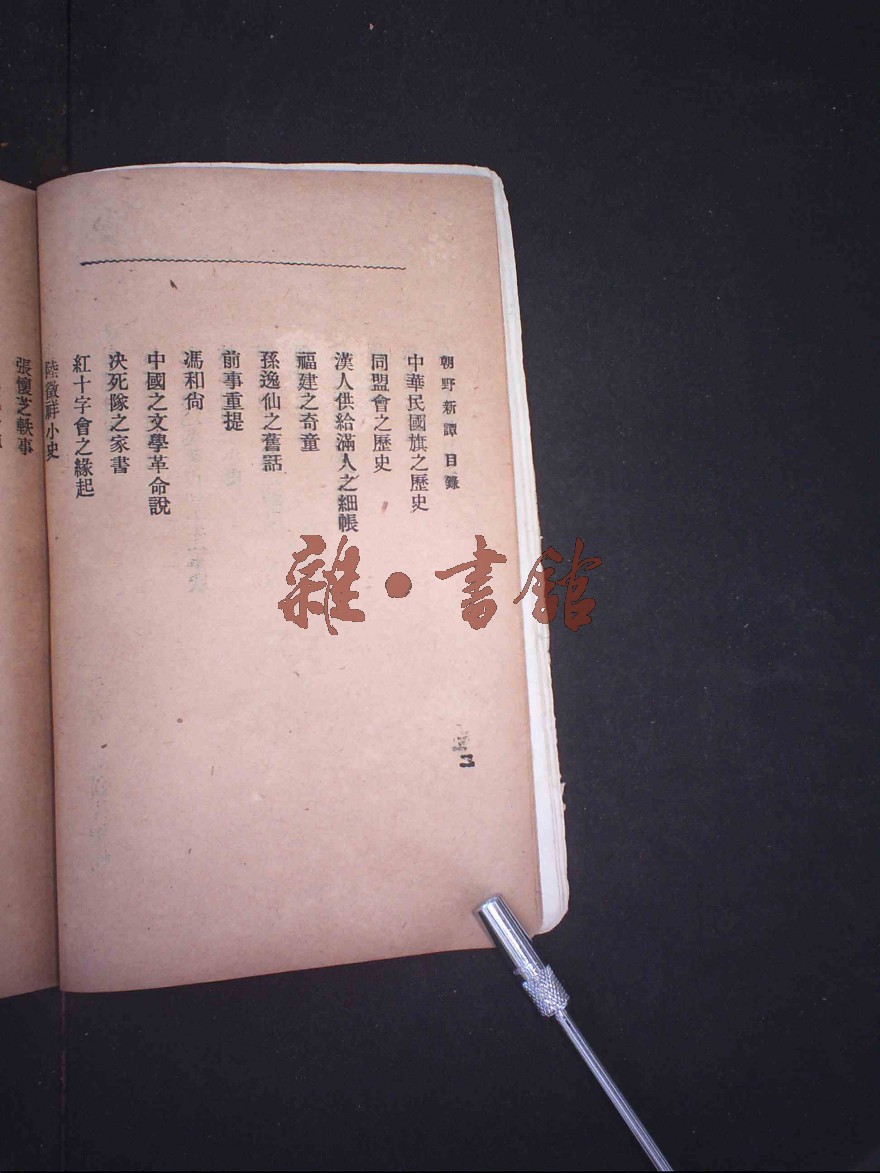 朝野新譚 目錄
中華民國旗之歷史
同盟會之歷史
漢人供給滿人之細帳
福建之奇童
孫逸仙之舊話
前事重提
馮和尙
中國之文學革命說
决死隊之家書
紅十字會之緣起
陸徵祥小史
張懷芝軼事
雜·書館